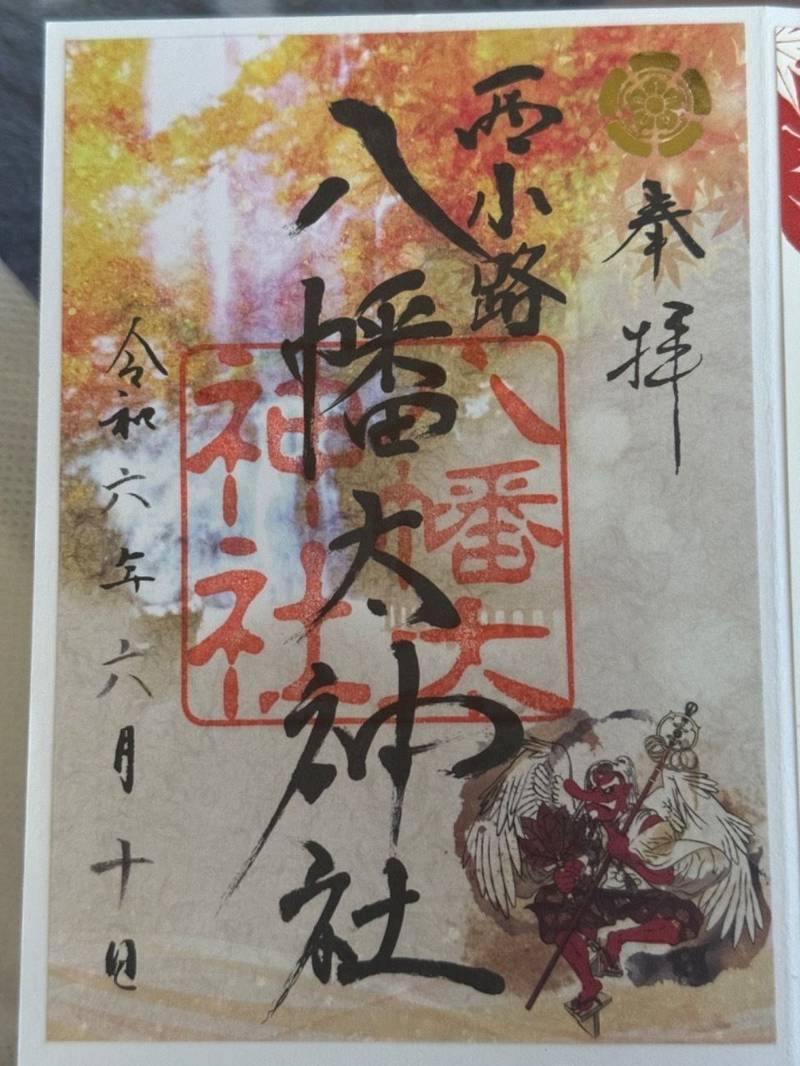 奉拝
西小路
八幡太神社
八幡太
神社
令和六年六月十日